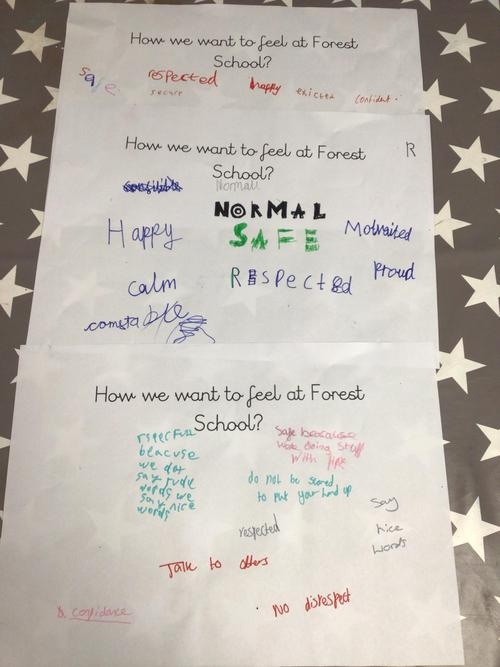 How we want to feel at Forest
School?
Safe
respected
happy
exicted
confident.
secure
How we want to feel at Forest
School?
R
Normal
NORMAL
Happy
SAFE
Motvaited
calm
Respected
Proud
comstable
How we want to feel at Forest
School?
rspecfull
beacuse
we dot
say rude
words we
say nice
words
Safe beacause
were doing Stuff
with fire
do not be scared
to put your hand up
respected
Say
nice
words
Talk to others
confidance
No disrespect